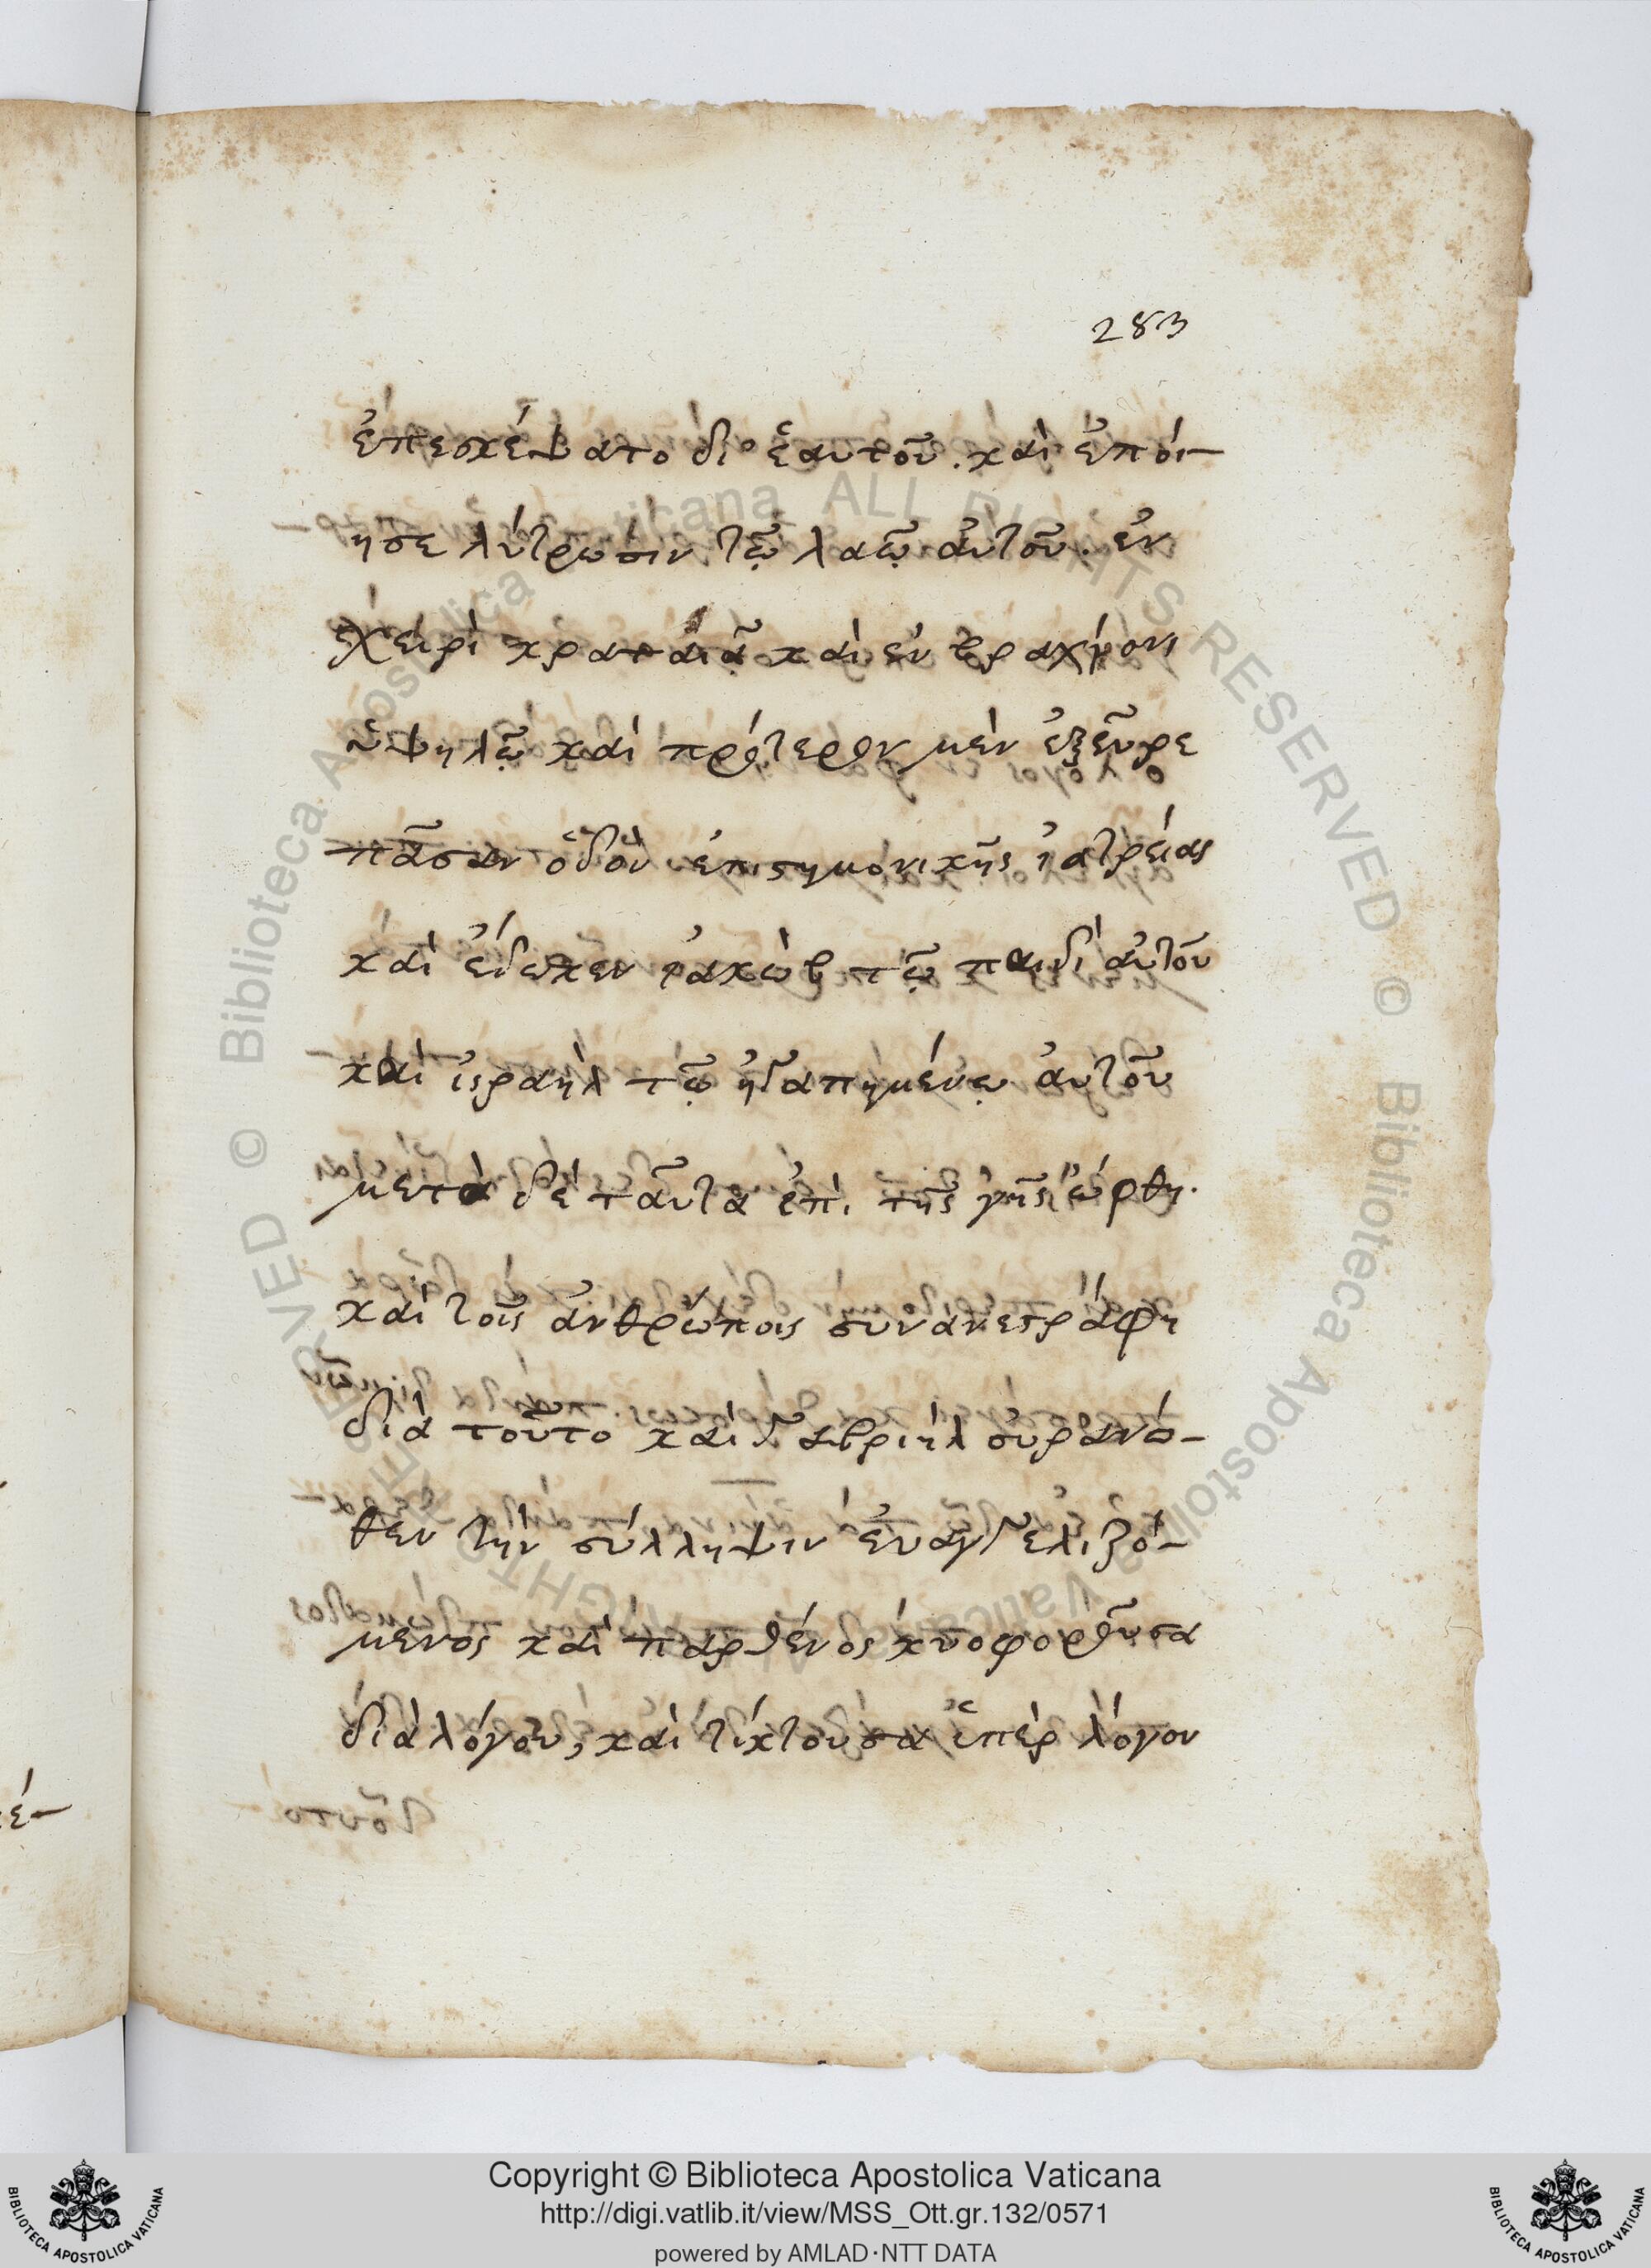 283
ἐπεσκέψατο δι' ἑαυτοῦ. καὶ ἐποί-
ησε λύτρωσιν τῷ λαῷ αὐτοῦ. ἐν
χειρὶ κραταιᾷ καὶ ἐν βραχίονι
ὑψηλῷ καὶ πρότερον μὲν ἐξεῦρε
πᾶσαν ὁδὸν ἐπιστημονικῆς ἰατρείας
καὶ ἔδωκεν ἰακὼβ τῷ παιδὶ αὐτοῦ
καὶ ἰσραὴλ τῷ ἠγαπημένῳ αὐτοῦ
μετὰ δὲ ταῦτα ἐπὶ τῆς γῆς ὤφθη.
καὶ τοῖς ἀνθρώποις συνανεστράφη
διὰ τοῦτο καὶ γαβριὴλ οὐρανό-
θεν τὴν σύλληψιν εὐαγγελιζό-
μενος καὶ παρθένος κυοφοροῦσα
διὰ λόγου, καὶ τίκτουσα ὑπὲρ λόγον
© Biblioteca Apostolica Vaticana ALL RIGHTS RESERVED
Copyright © Biblioteca Apostolica Vaticana
http://digi.vatlib.it/view/MSS_Ott.gr.132/0571
powered by AMLAD·NTT DATA
BIBLIOTECA APOSTOLICA VATICANA
BIBLIOTECA APOSTOLICA VATICANA